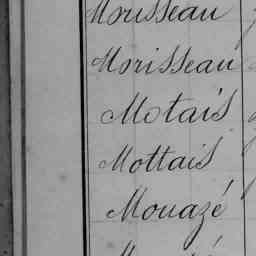 Mousseau
Morisseau
Motais
Mottais
Mouazé